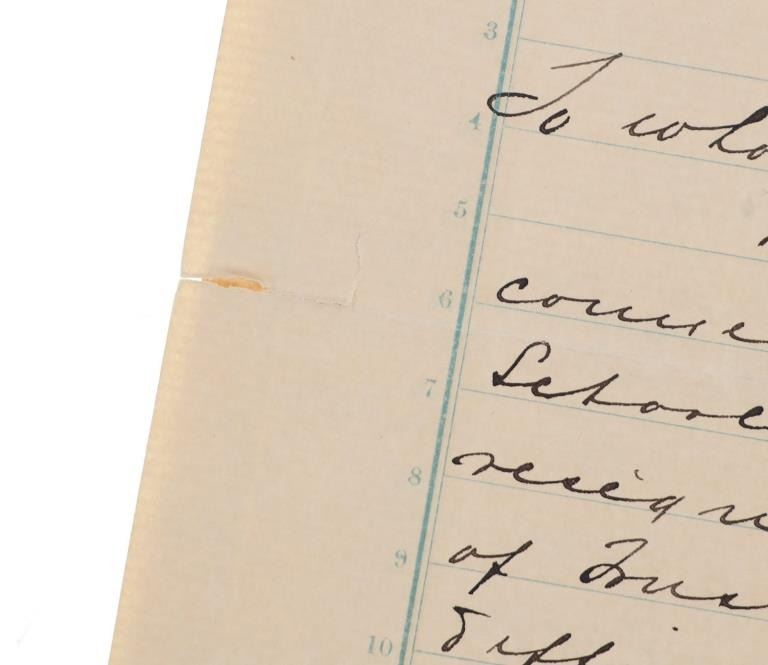 3
4 To who
5
6 conne
7 School
8 resign
9 of Trus
10 Diff